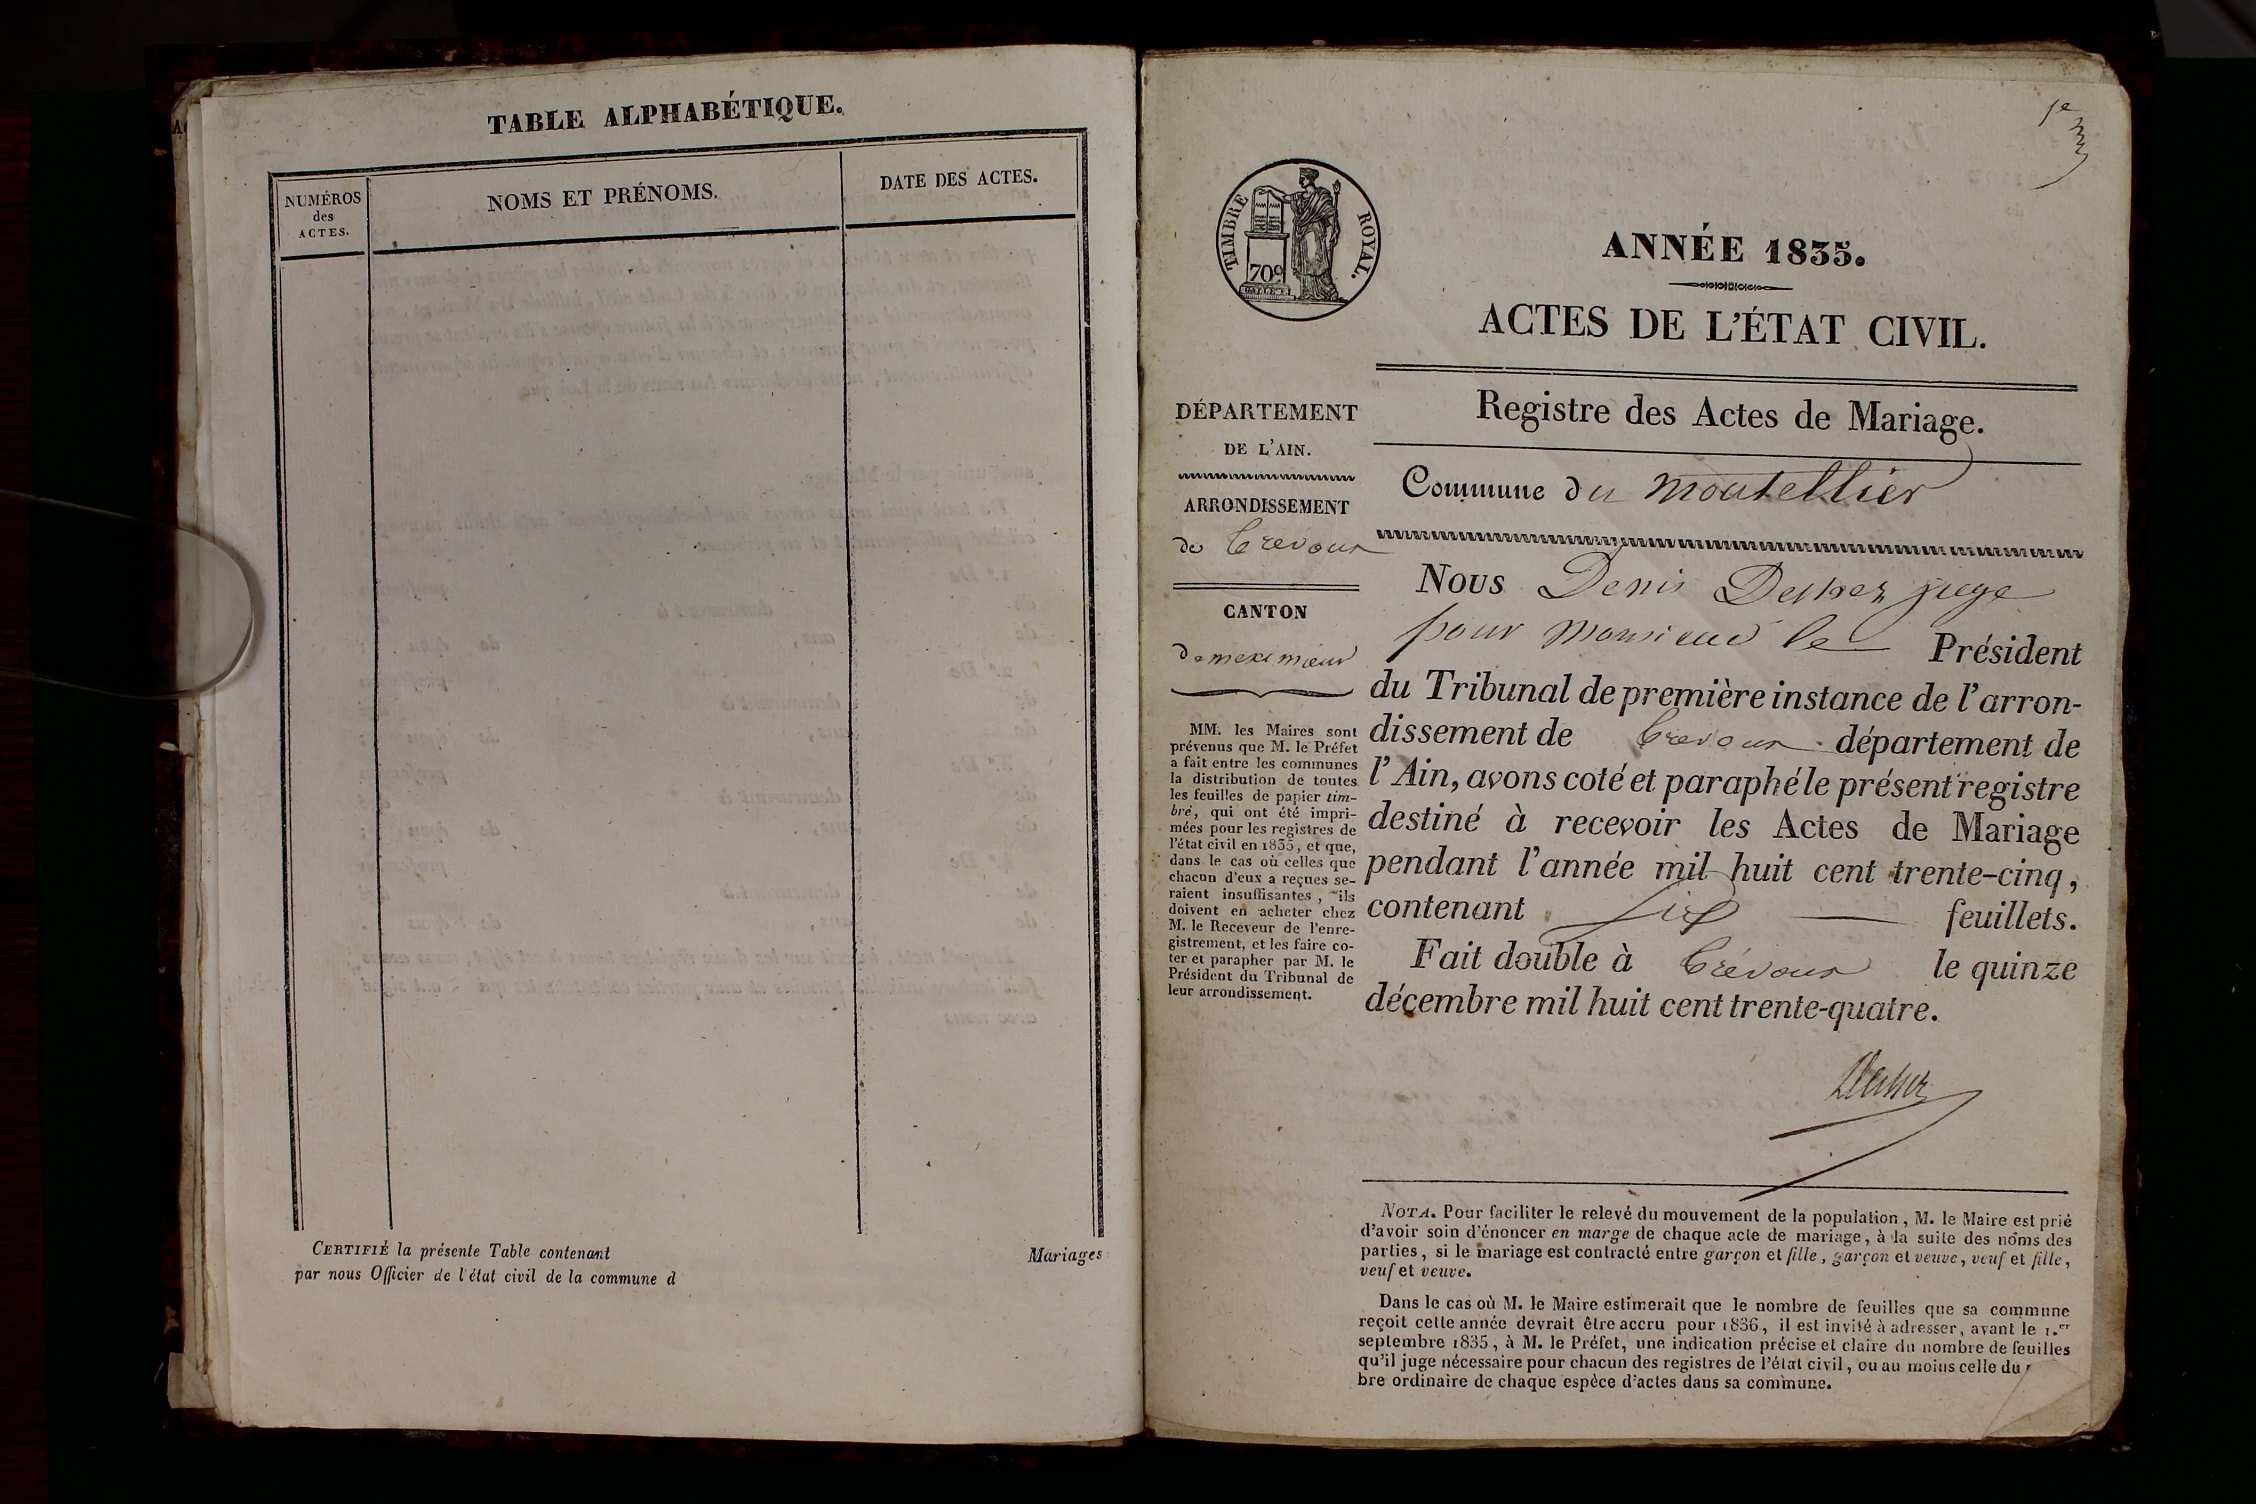 TABLE ALPHABÉTIQUE.
NUMÉROS
des
ACTES.
NOMS ET PRÉNOMS.
DATE DES ACTES.
CERTIFIÉ la présente Table contenant
par nous Officier de l'état civil de la commune d
Mariages
1e
TIMBRE ROYAL.
70c
ANNÉE 1835.
ACTES DE L'ÉTAT CIVIL.
Registre des Actes de Mariage.
DÉPARTEMENT
DE L'AIN.
ARRONDISSEMENT
de Trevoux
CANTON
de meximieux
MM. les Maires sont
prévenus que M. le Préfet
a fait entre les communes
la distribution de toutes
les feuilles de papier tim-
bré, qui ont été impri-
mées pour les registres de
l'état civil en 1835, et que,
dans le cas où celles que
chacun d'eux a reçues se-
raient insuffisantes, ils
doivent en acheter chez
M. le Receveur de l'enre-
gistrement, et les faire co-
ter et parapher par M. le
Président du Tribunal de
leur arrondissement.
Commune du montellier
Nous Denis juge
pour monsieur le Président
du Tribunal de première instance de l'arron-
dissement de Trevoux département de
l'Ain, avons coté et paraphé le présent registre
destiné à recevoir les Actes de Mariage
pendant l'année mil huit cent trente-cinq,
contenant six feuillets.
Fait double à Trévoux le quinze
décembre mil huit cent trente-quatre.
NOTA. Pour faciliter le relevé du mouvement de la population, M. le Maire est prié
d'avoir soin d'énoncer en marge de chaque acte de mariage, à la suite des noms des
parties, si le mariage est contracté entre garçon et fille, garçon et veuve, veuf et fille,
veuf et veuve.
Dans le cas où M. le Maire estimerait que le nombre de feuilles que sa commune
reçoit cette année devrait être accru pour 1836, il est invité à adresser, avant le 1.er
septembre 1835, à M. le Préfet, une indication précise et claire du nombre de feuilles
qu'il juge nécessaire pour chacun des registres de l'état civil, ou au moins celle du
bre ordinaire de chaque espèce d'actes dans sa commune.